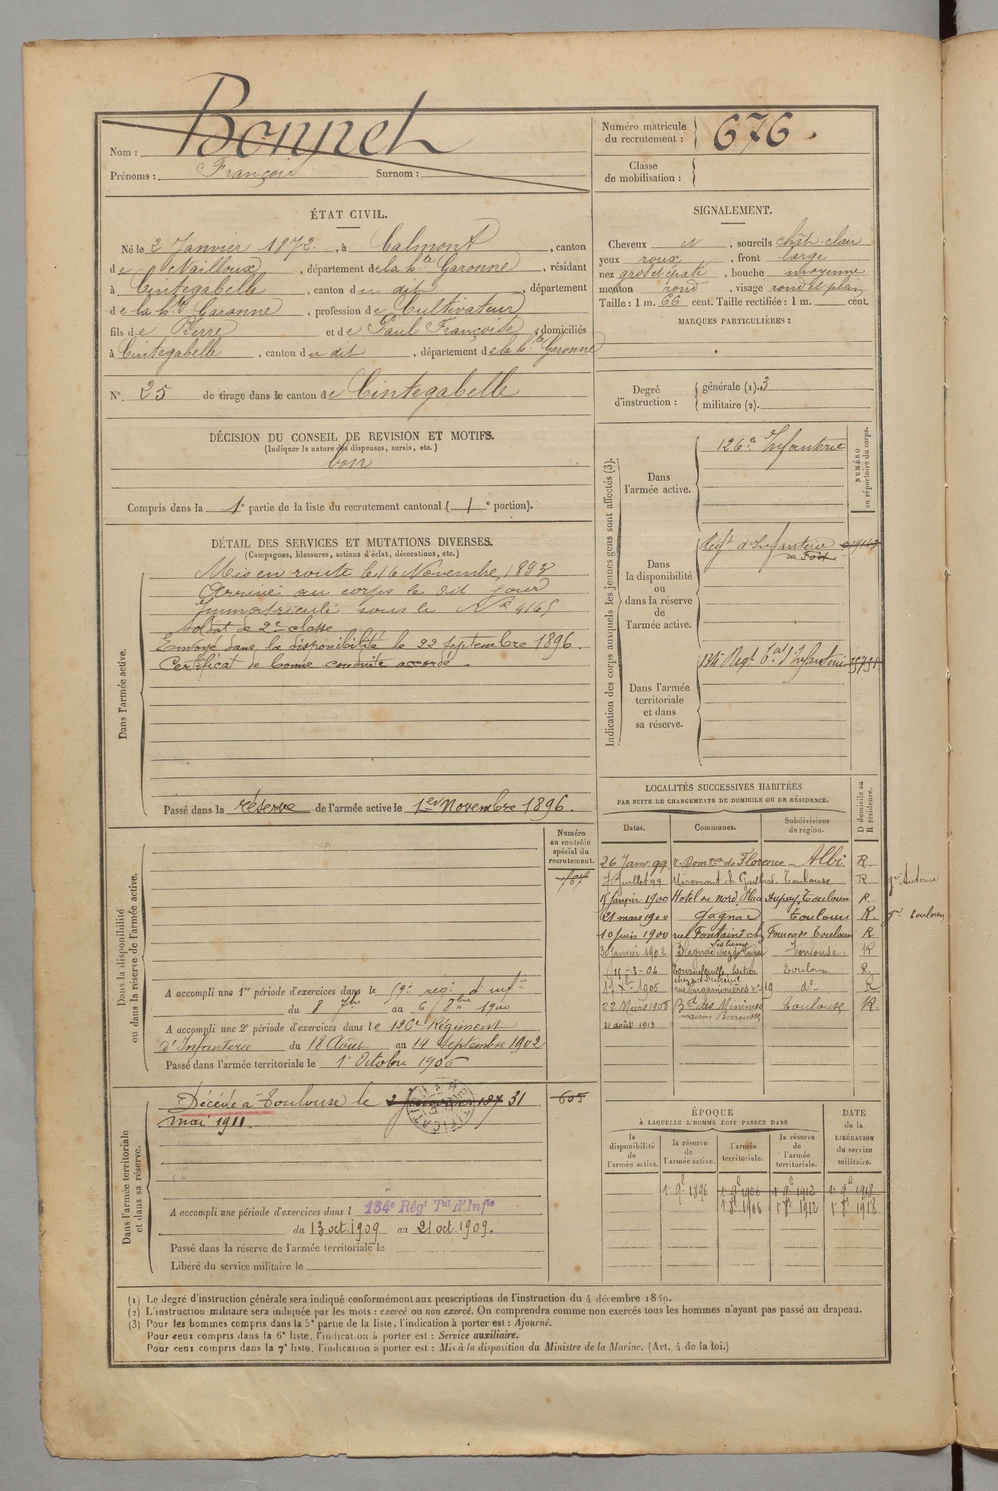 Nom : Bonnet
Prénoms : François Surnom :
Numéro matricule
du recrutement : 676.
Classe
de mobilisation :
ÉTAT CIVIL.
Né le 2 Janvier 1872, à Calmont, canton
de Nailloux, département de la hte Garonne, résidant
à Cintegabelle, canton du dit, département
de la hte Garonne, profession de Cultivateur
fils de Pierre et de Paul Françoise, domiciliés
à Cintegabelle, canton du dit, département de la hte Garonne
N°. 25 de tirage dans le canton de Cintegabelle
DÉCISION DU CONSEIL DE REVISION ET MOTIFS.
(Indiquer la nature des dispenses, sursis, etc.)
bon
Compris dans la 1e partie de la liste du recrutement cantonal (1e portion).
DÉTAIL DES SERVICES ET MUTATIONS DIVERSES.
(Campagnes, blessures, actions d'éclat, décorations, etc.)
Dans l'armée active.
Mis en route le 16 Novembre 1893
Arrivé au corps le dit jour
Immatriculé sous le N° 4165
Soldat de 2e classe
Envoyé dans la disponibilité le 22 Septembre 1896.
Certificat de bonne conduite accordé
Passé dans la réserve de l'armée active le 1er Novembre 1896.
SIGNALEMENT.
Cheveux N, sourcils chât. clair
yeux roux, front large
nez gros et épaté, bouche moyenne
menton rond, visage rond et plan
Taille : 1 m. 66 cent. Taille rectifiée : 1 m. cent.
MARQUES PARTICULIÈRES :
Degré
d'instruction :
générale (1). 3
militaire (2).
Indication des corps auxquels les jeunes gens sont affectés (3).
NUMÉRO
au répertoire du corps.
Dans
l'armée active.
126e Infanterie
Dans
la disponibilité
ou
dans la réserve
de
l'armée active.
Régt d'Infanterie
de Foix
Dans l'armée
territoriale
et dans
sa réserve.
134e Régt Tal d'Infanterie
LOCALITÉS SUCCESSIVES HABITÉES
PAR SUITE DE CHANGEMENTS DE DOMICILE OU DE RÉSIDENCE.
Dates. Communes. Subdivisions
de région. D domicile ou
R résidence.
26 Janv. 99 Albi R.
7 Juillet 99 Miremont Toulouse R.
Janvier 1900 Hotel du Nord Toulouse R.
21 mars 1900 Gagnac Toulouse R.
10 Juin 1900 rue Fontaine chez Foucade Toulouse R
Janvier 1902 Blagnac Toulouse R
Tournefeuille Toulouse R.
1905 n° 19 do R
22 Mars 1908 Bd des Minimes Toulouse R.
21 août 1913 maison
Dans la disponibilité
ou dans la réserve de l'armée active.
Numéro
au contrôle
spécial du
recrutement.
A accompli une 1re période d'exercices dans le 19e reg. d'infie
du 8 7bre au 6 8bre 1900
A accompli une 2e période d'exercices dans le 126e Régiment
d'Infanterie du 18 Août au 14 Septembre 1902
Passé dans l'armée territoriale le 1er Octobre 1906
Dans l'armée territoriale
et dans sa réserve.
Décédé à Toulouse le 31
mai 1911.
605
A accompli une période d'exercices dans l 134e Régt Tal d'Infie
du 13 oct. 1909 au 21 oct. 1909.
Passé dans la réserve de l'armée territoriale le
Libéré du service militaire le
ÉPOQUE
À LAQUELLE L'HOMME DOIT PASSER DANS
DATE
de la
LIBÉRATION
du service
militaire.
la
disponibilité
de
l'armée active.
la réserve
de
l'armée active.
l'armée
territoriale.
la réserve
de
l'armée
territoriale.
1er 9bre 1896 1er 9bre 1906 1er 9bre 1912 1er 9bre 1918
1er 8bre 1906 1er 8bre 1912 1er 8bre 1918
(1) Le degré d'instruction générale sera indiqué conformément aux prescriptions de l'instruction du 4 décembre 1889.
(2) L'instruction militaire sera indiquée par les mots : exercé ou non exercé. On comprendra comme non exercés tous les hommes n'ayant pas passé au drapeau.
(3) Pour les hommes compris dans la 5e partie de la liste, l'indication à porter est : Ajourné.
Pour ceux compris dans la 6e liste, l'indication à porter est : Service auxiliaire.
Pour ceux compris dans la 7e liste, l'indication à porter est : Mis à la disposition du Ministre de la Marine. (Art. 4 de la loi.)